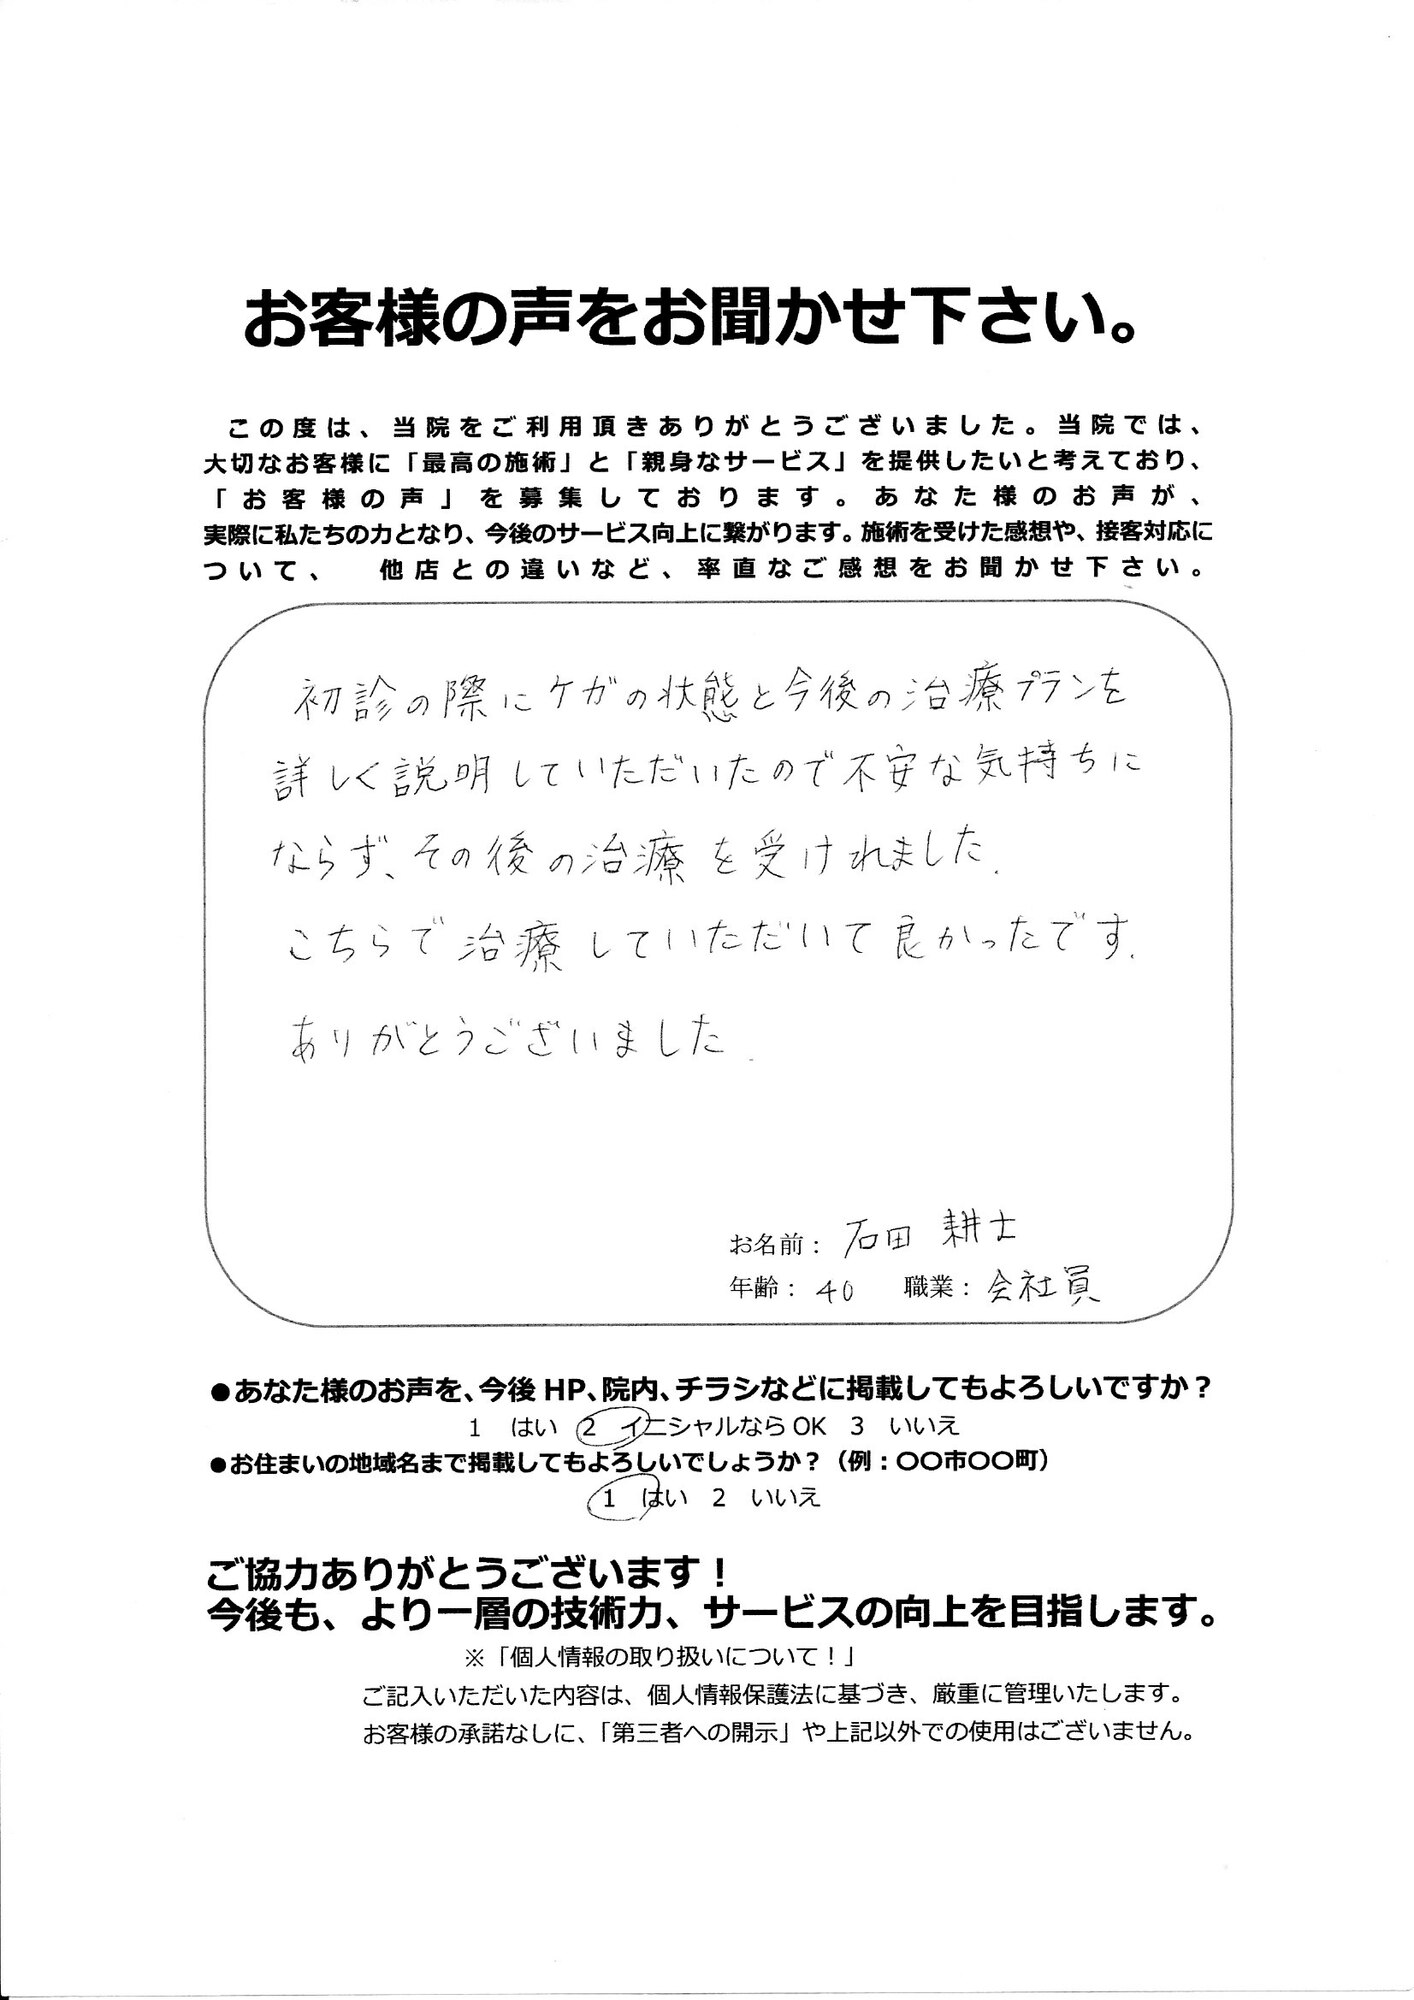 お客様の声をお聞かせ下さい。
この度は、当院をご利用頂きありがとうございました。当院では、
大切なお客様に「最高の施術」と「親身なサービス」を提供したいと考えており、
「お客様の声」を募集しております。あなた様のお声が、
実際に私たちの力となり、今後のサービス向上に繋がります。施術を受けた感想や、接客対応に
ついて、　他店との違いなど、率直なご感想をお聞かせ下さい。
初診の際にケガの状態と今後の治療プランを
詳しく説明していただいたので不安な気持ちに
ならず、その後の治療を受けれました.
こちらで治療していただいて良かったです.
ありがとうございました.
お名前： 石田 耕士
年齢： 40　職業： 会社員
●あなた様のお声を、今後 HP、院内、チラシなどに掲載してもよろしいですか？
1　はい　2　イニシャルなら OK　3　いいえ
●お住まいの地域名まで掲載してもよろしいでしょうか？（例：〇〇市〇〇町）
1　はい　2　いいえ
ご協力ありがとうございます！
今後も、より一層の技術力、サービスの向上を目指します。
※「個人情報の取り扱いについて！」
ご記入いただいた内容は、個人情報保護法に基づき、厳重に管理いたします。
お客様の承諾なしに、「第三者への開示」や上記以外での使用はございません。